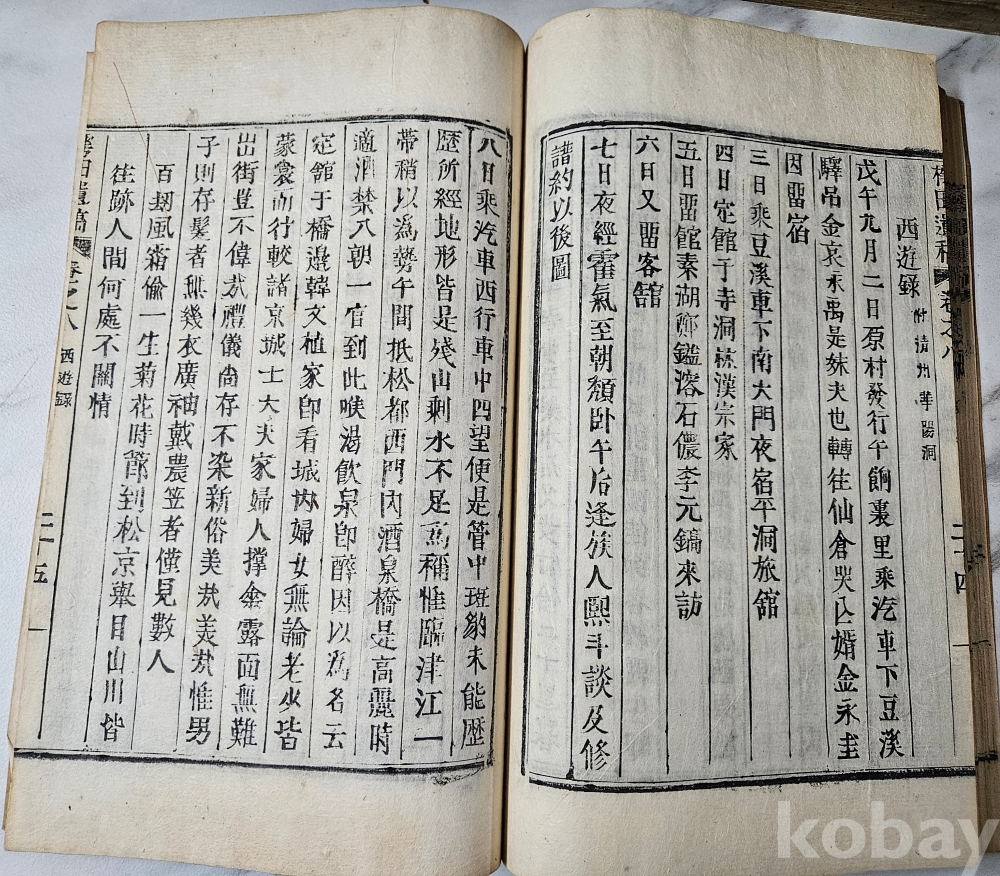 西遊錄 附清州華陽洞
戊午九月二日原村發行午餉裏里乘汽車下豆溪
驛吊金哀永禹是妹夫也轉往仙倉哭亡婿金永圭
因畱宿
三日乘豆溪車下南大門夜宿平洞旅舘
四日定館于寺洞 漢宗家
五日畱館秦湖 鑑溶石儂李元鎬來訪
六日又畱客舘
七日夜經霍氣至朝頹卧午后逢族人熙斗談及修
譜約以後圖
八日乘汽車西行車中四望便是管中班豹未能歷
歷所經地形皆是殘山剩水不足爲稱惟臨津江一
帶稍以爲勢午間抵松都西門內酒泉橋是高麗時
適酒禁入朝一官到此喉渴飮泉卽醉因以爲名云
定館于橋邊韓文植家卽看城內婦女無論老少皆
蒙裳而行較諸京城士大夫家婦人撑傘露面無難
出街豈不偉哉禮儀尙存不染新俗美哉美哉惟男
子則存髮者無幾衣廣袖戴農笠者僅見數人
百 風霜偷一生菊花時節到松京擧目山川皆
徃跡人間何處不關情
遺稿 卷之八 西遊錄 二十五
遺稿 卷之八 二十四
kobay